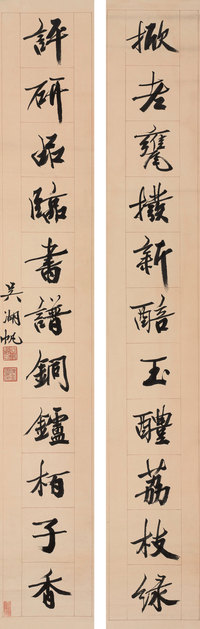 掀老甕撲新醅玉醴荔枝綠
評研品臨書譜銅鑪栢子香
吳湖帆